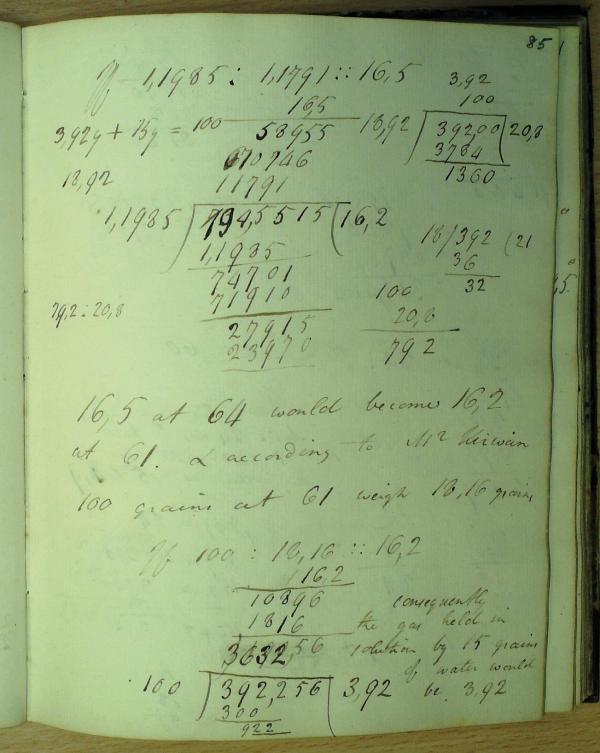 85
If 1,1985 : 1,1791 :: 16,5
3,92
100
16,5
3,92g + 15g = 100
58955
18,92 ) 39200 ( 20,8
3784
70746
18,92
11791
1360
1,1985 ) 194,5515 ( 16,2
1,1985
18 / 392 ( 21
74701
36
71910
100
32
79,2 : 20,8
27915
20,8
23970
79 2
16,5 at 64 would become 16,2
at 61. & according to Mr Kirwan
100 grains at 61 weigh 18,16 grains
If 100 : 18,16 :: 16,2
16,2
10896
consequently
1816
the gas held in
3632,56
solution by 15 grains
of water would
100 ) 392,256 ( 3,92
be 3,92
300
922